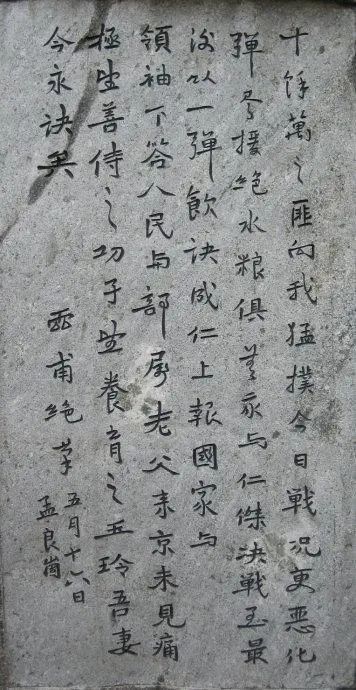 十餘萬之匪向我猛撲今日戰況更惡化
彈尽援絕水粮俱無我与仁傑決戰至最
後以一彈飲訣成仁上報國家与
領袖下答人民与部屬老父来京未見痛
極望善待之幼子望養育之玉玲吾妻
今永訣矣
靈甫絕筆 五月十六日
孟良崮